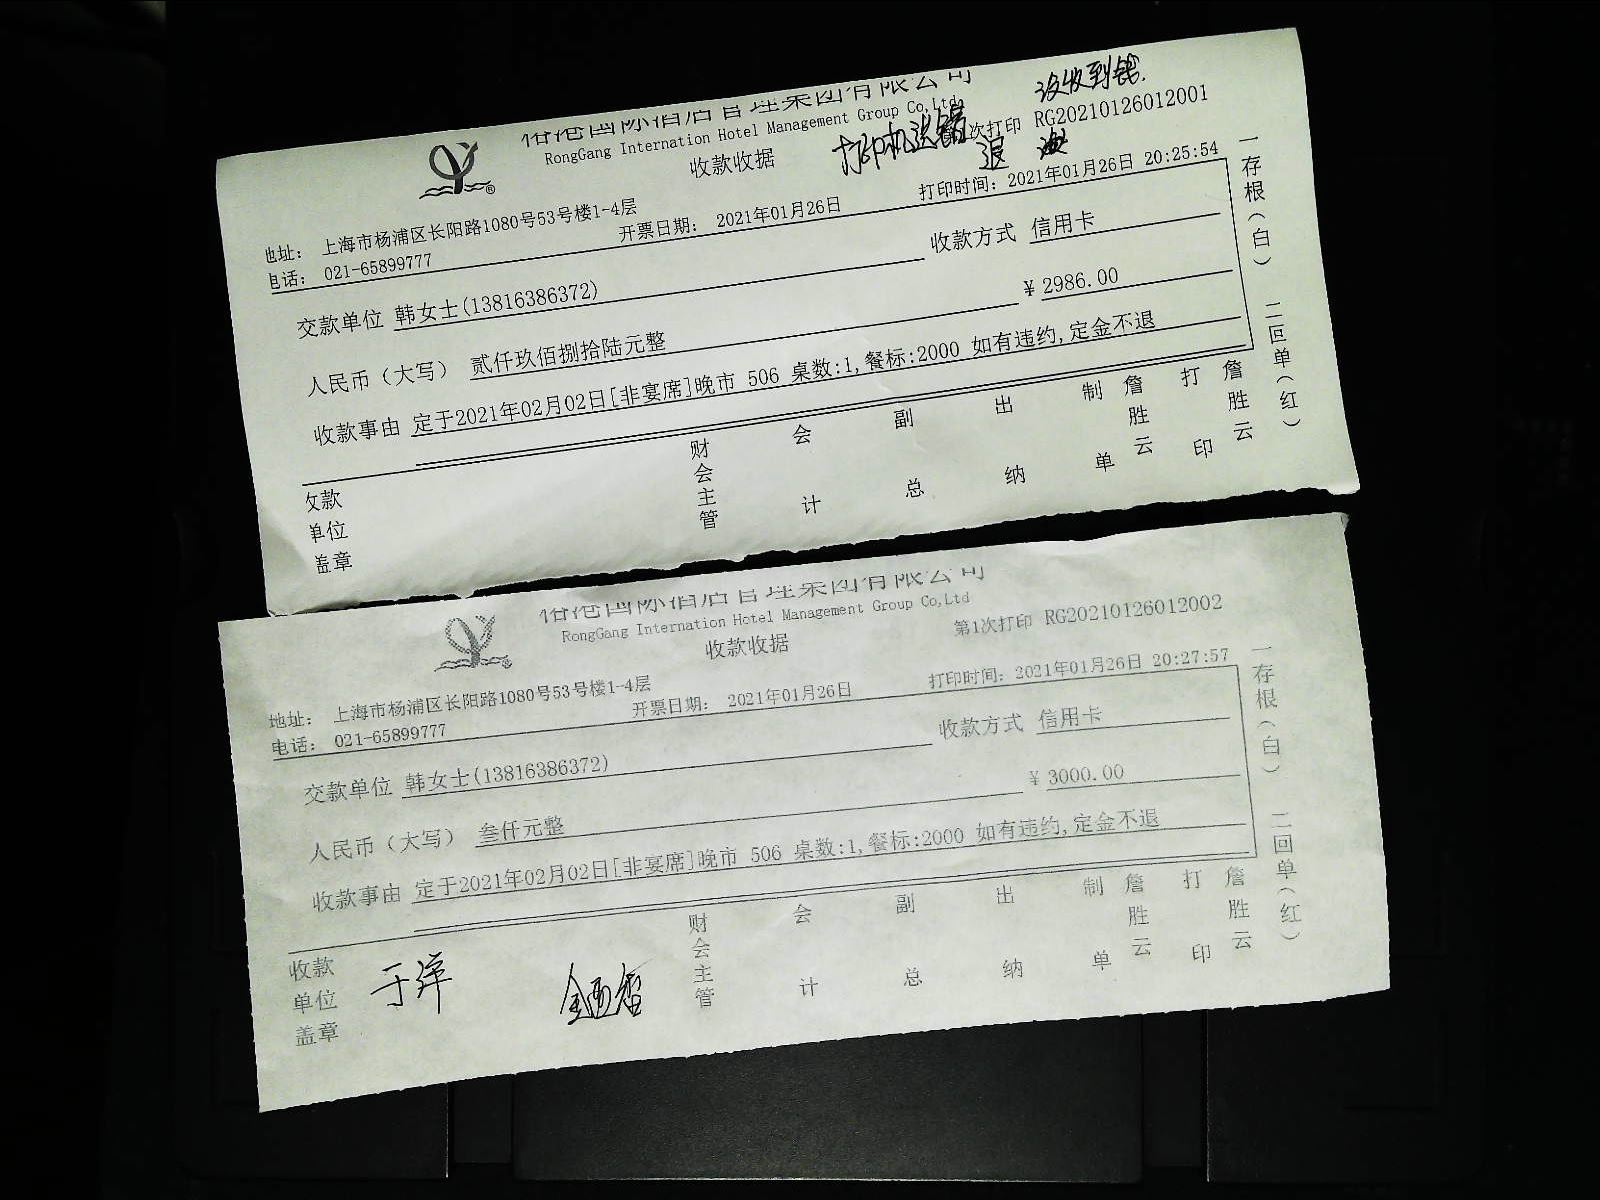 国际酒店管理集团有限公司
没收到钱.
RongGang International Hotel Management Group Co,Ltd
打印机送错
次打印 RG20210126012001
收款收据
退
打印时间: 2021年01月26日 20:25:54
地址: 上海市杨浦区长阳路1080号53号楼1-4层
开票日期: 2021年01月26日
电话: 021-65899777
收款方式 信用卡
交款单位 韩女士(13816386372)
¥ 2986.00
人民币（大写） 贰仟玖佰捌拾陆元整
收款事由 定于2021年02月02日[非宴席]晚市 506 桌数:1,餐标:2000 如有违约,定金不退
收款单位盖章 财会主管 会计 副总 出纳 制单 詹胜云 打印 詹胜云
一存根（白） 二回单（红）
国际酒店管理集团有限公司
RongGang International Hotel Management Group Co,Ltd
第1次打印 RG20210126012002
收款收据
打印时间: 2021年01月26日 20:27:57
地址: 上海市杨浦区长阳路1080号53号楼1-4层
开票日期: 2021年01月26日
电话: 021-65899777
收款方式 信用卡
交款单位 韩女士(13816386372)
¥ 3000.00
人民币（大写） 叁仟元整
收款事由 定于2021年02月02日[非宴席]晚市 506 桌数:1,餐标:2000 如有违约,定金不退
收款单位盖章 于萍 财会主管 会计 副总 出纳 制单 詹胜云 打印 詹胜云
一存根（白） 二回单（红）